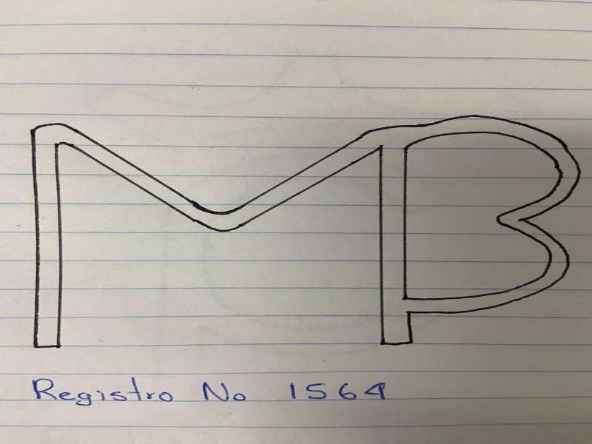 MB
Registro No 1564